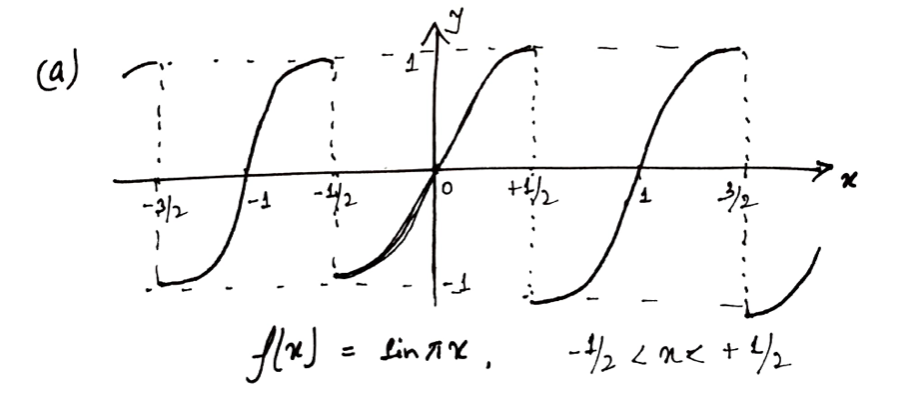 (a)
y
1
-3/2 -1 -1/2 0 +1/2 1 3/2 x
-1
f(x) = sin πx, -1/2 < x < +1/2